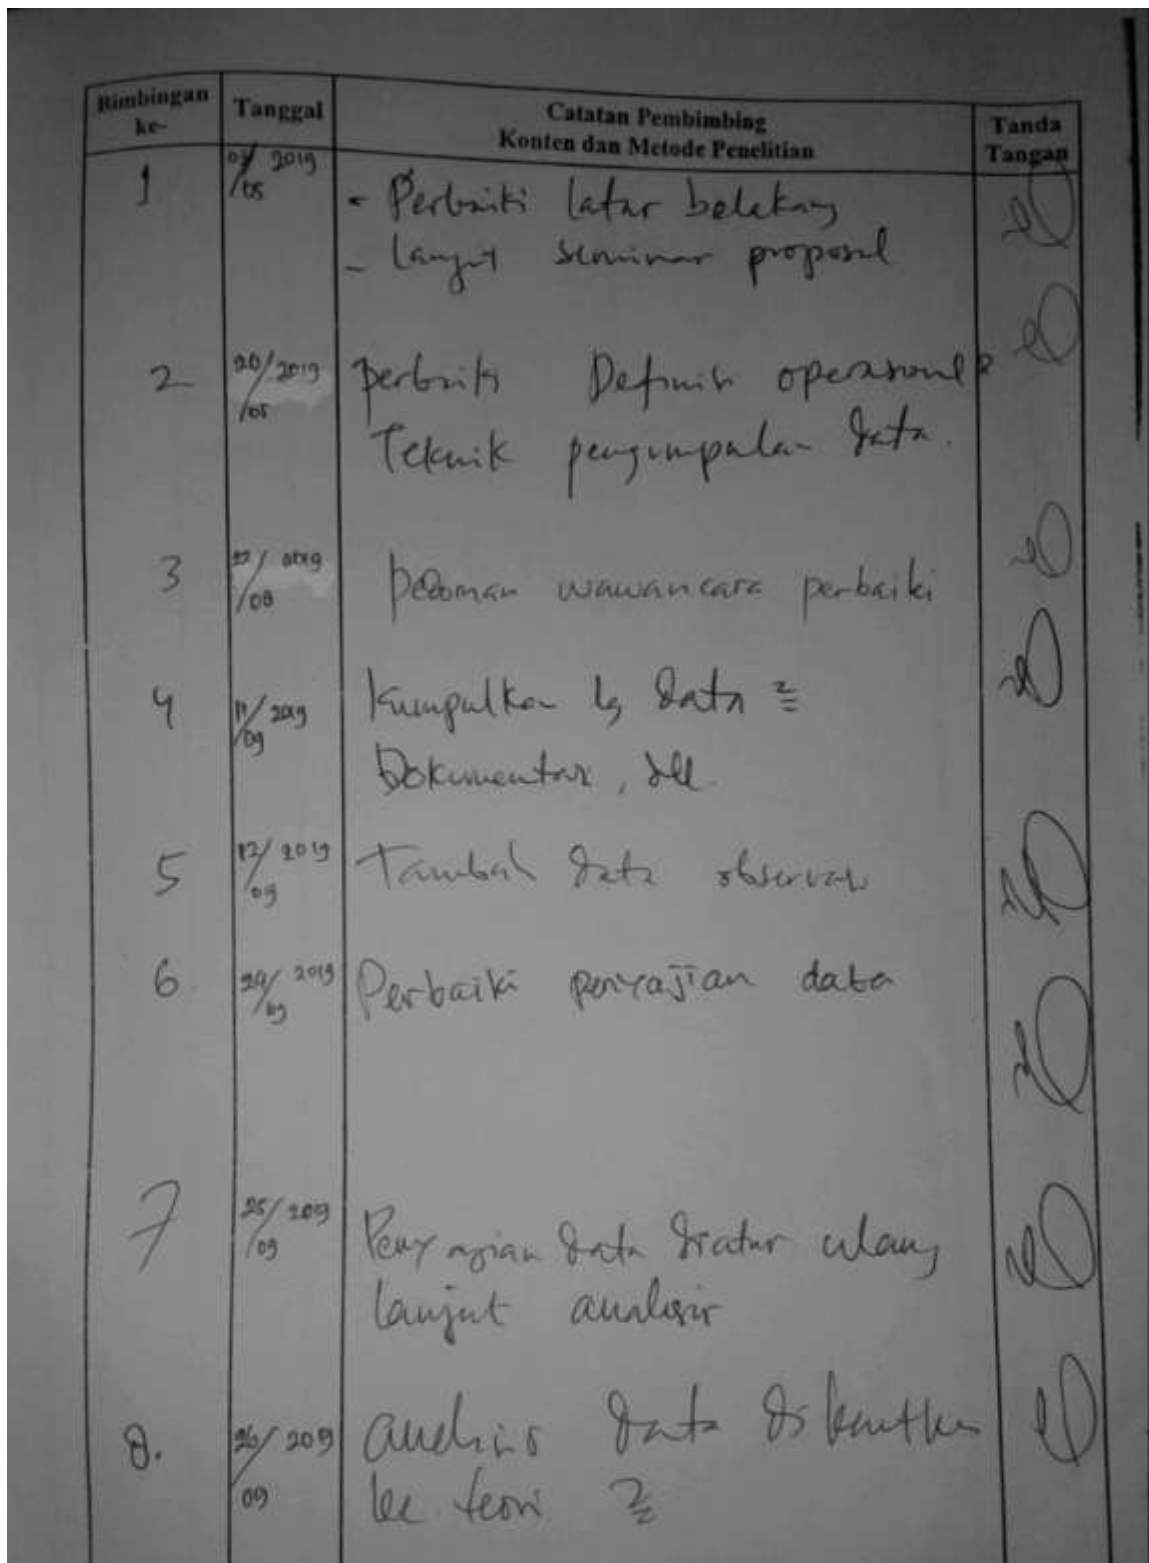 Bimbingan ke- Tanggal Catatan Pembimbing Konten dan Metode Penelitian Tanda Tangan
1 2019 /05 - Perbaiki latar belakang
- Lanjut seminar proposal
2 20/2019 /05 perbaiki Definisi operasional
Teknik pengumpulan data.
3 /08 pedoman wawancara perbaiki
4 11/2019 /09 Kumpulkan lg data
Dokumentasi, dll.
5 12/2019 /09 Tambah data observasi
6. 2019 /09 Perbaiki penyajian data
7 25/2019 /09 Penyajian data diatur ulang
lanjut analisis
8. 26/2019 09 analisis data dikaitkan
ke teori